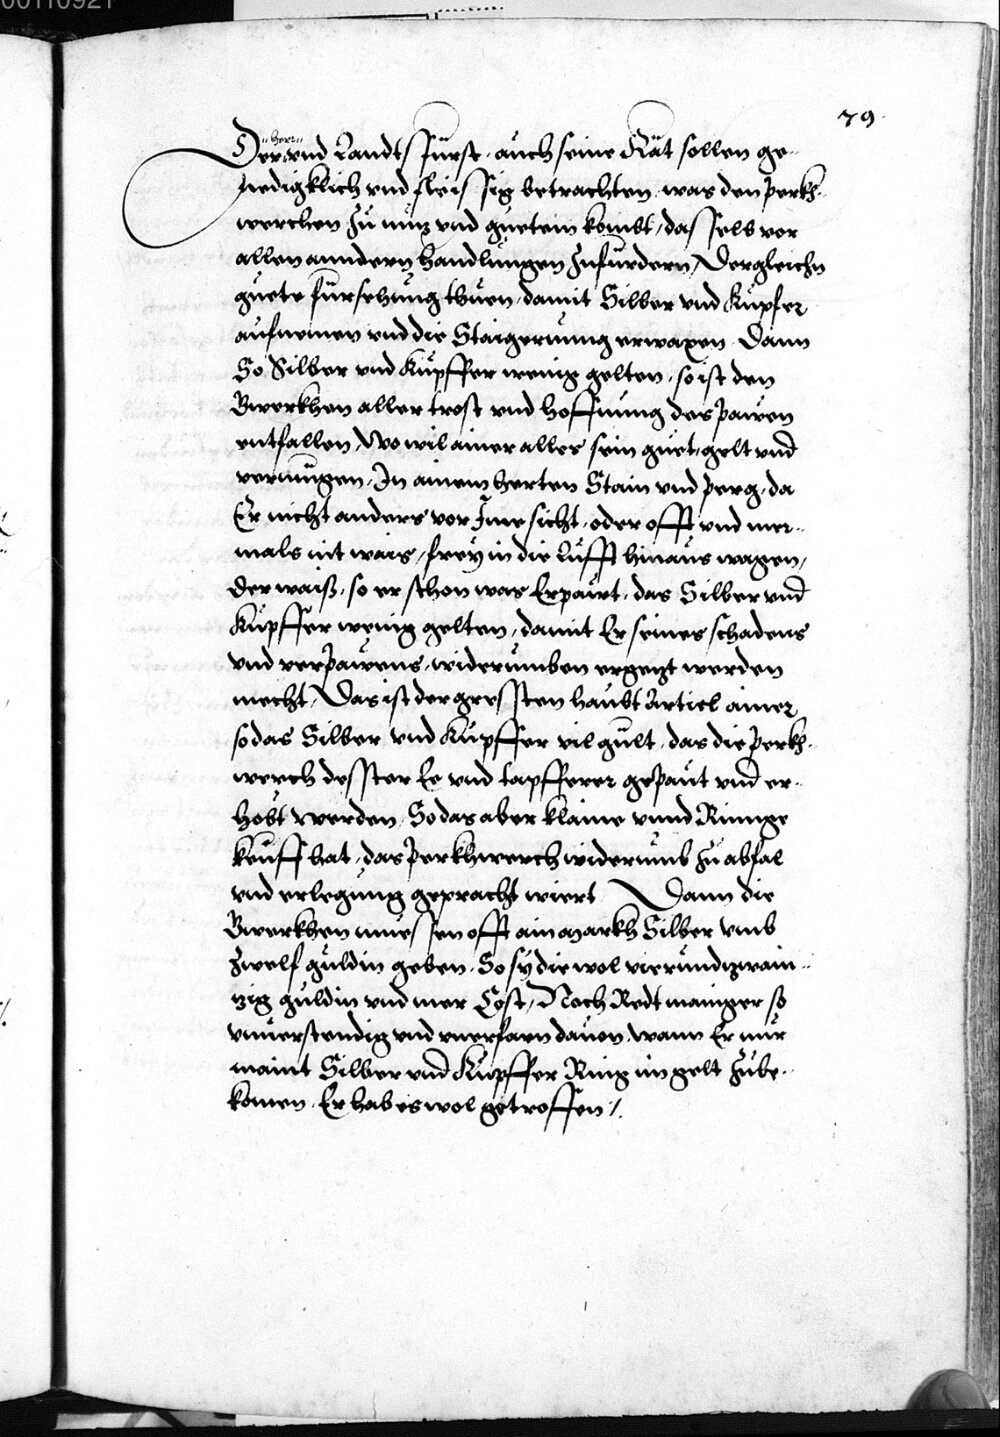 00110921
79.
herr
Der und Landts Fürst, auch seine Rät sollen ge-
nedigklich vnd fleissig betrachten, was den perkh-
werchen zu nuz vnd guetem kombt, dasselb vor
allen anndern handlungen zufürdern, Dergleichn
guete fürsehung thuen, damit Silber vnd Kupfer
aufnemen vnd die Staigerung erwaxen. Dann
So Silber vnd Kupffer wenig gelten, so ist den
Gwerkhen aller trost vnd hoffnung des pauen
entfallen, Wo wil ainer alles sein guet, gelt vnd
vermügen, In ainem herten Stain vnd perg, da
Er nicht anders vor Ime sicht, oder offt vnd mer-
mals nit wais, frey in die Lufft hinaus wagen,
der waiß, so er schon was Erpaut, das Silber vnd
Kupffer wenig gelten, damit Er seines schadens
vnd verpauens, widerumben ergezt werden
mecht, Das ist der gressten haubt Articl ainer
so das Silber vnd Kupffer vil gült, das die perkh-
werch desster Ee vnd tapfferer gepaut vnd er-
hebt werden, So das aber klaine vnnd Ringe
keuff hat, das perkhwerch widerumb zu abfal
vnd erlegung gepracht wiert, Dann die
Gwerkhen muessen offt ain markh Silber vmb
zwelf guldin geben, So sy die wol vierundzwain-
zig guldin vnd mer Cost, Noch Redt mainger so
vnuerstendig vnd vnerfarn dauon, wann Er nur
maint Silber vnd Kupffer Ring im gelt zube-
komen, Er hab es wol getroffen /.